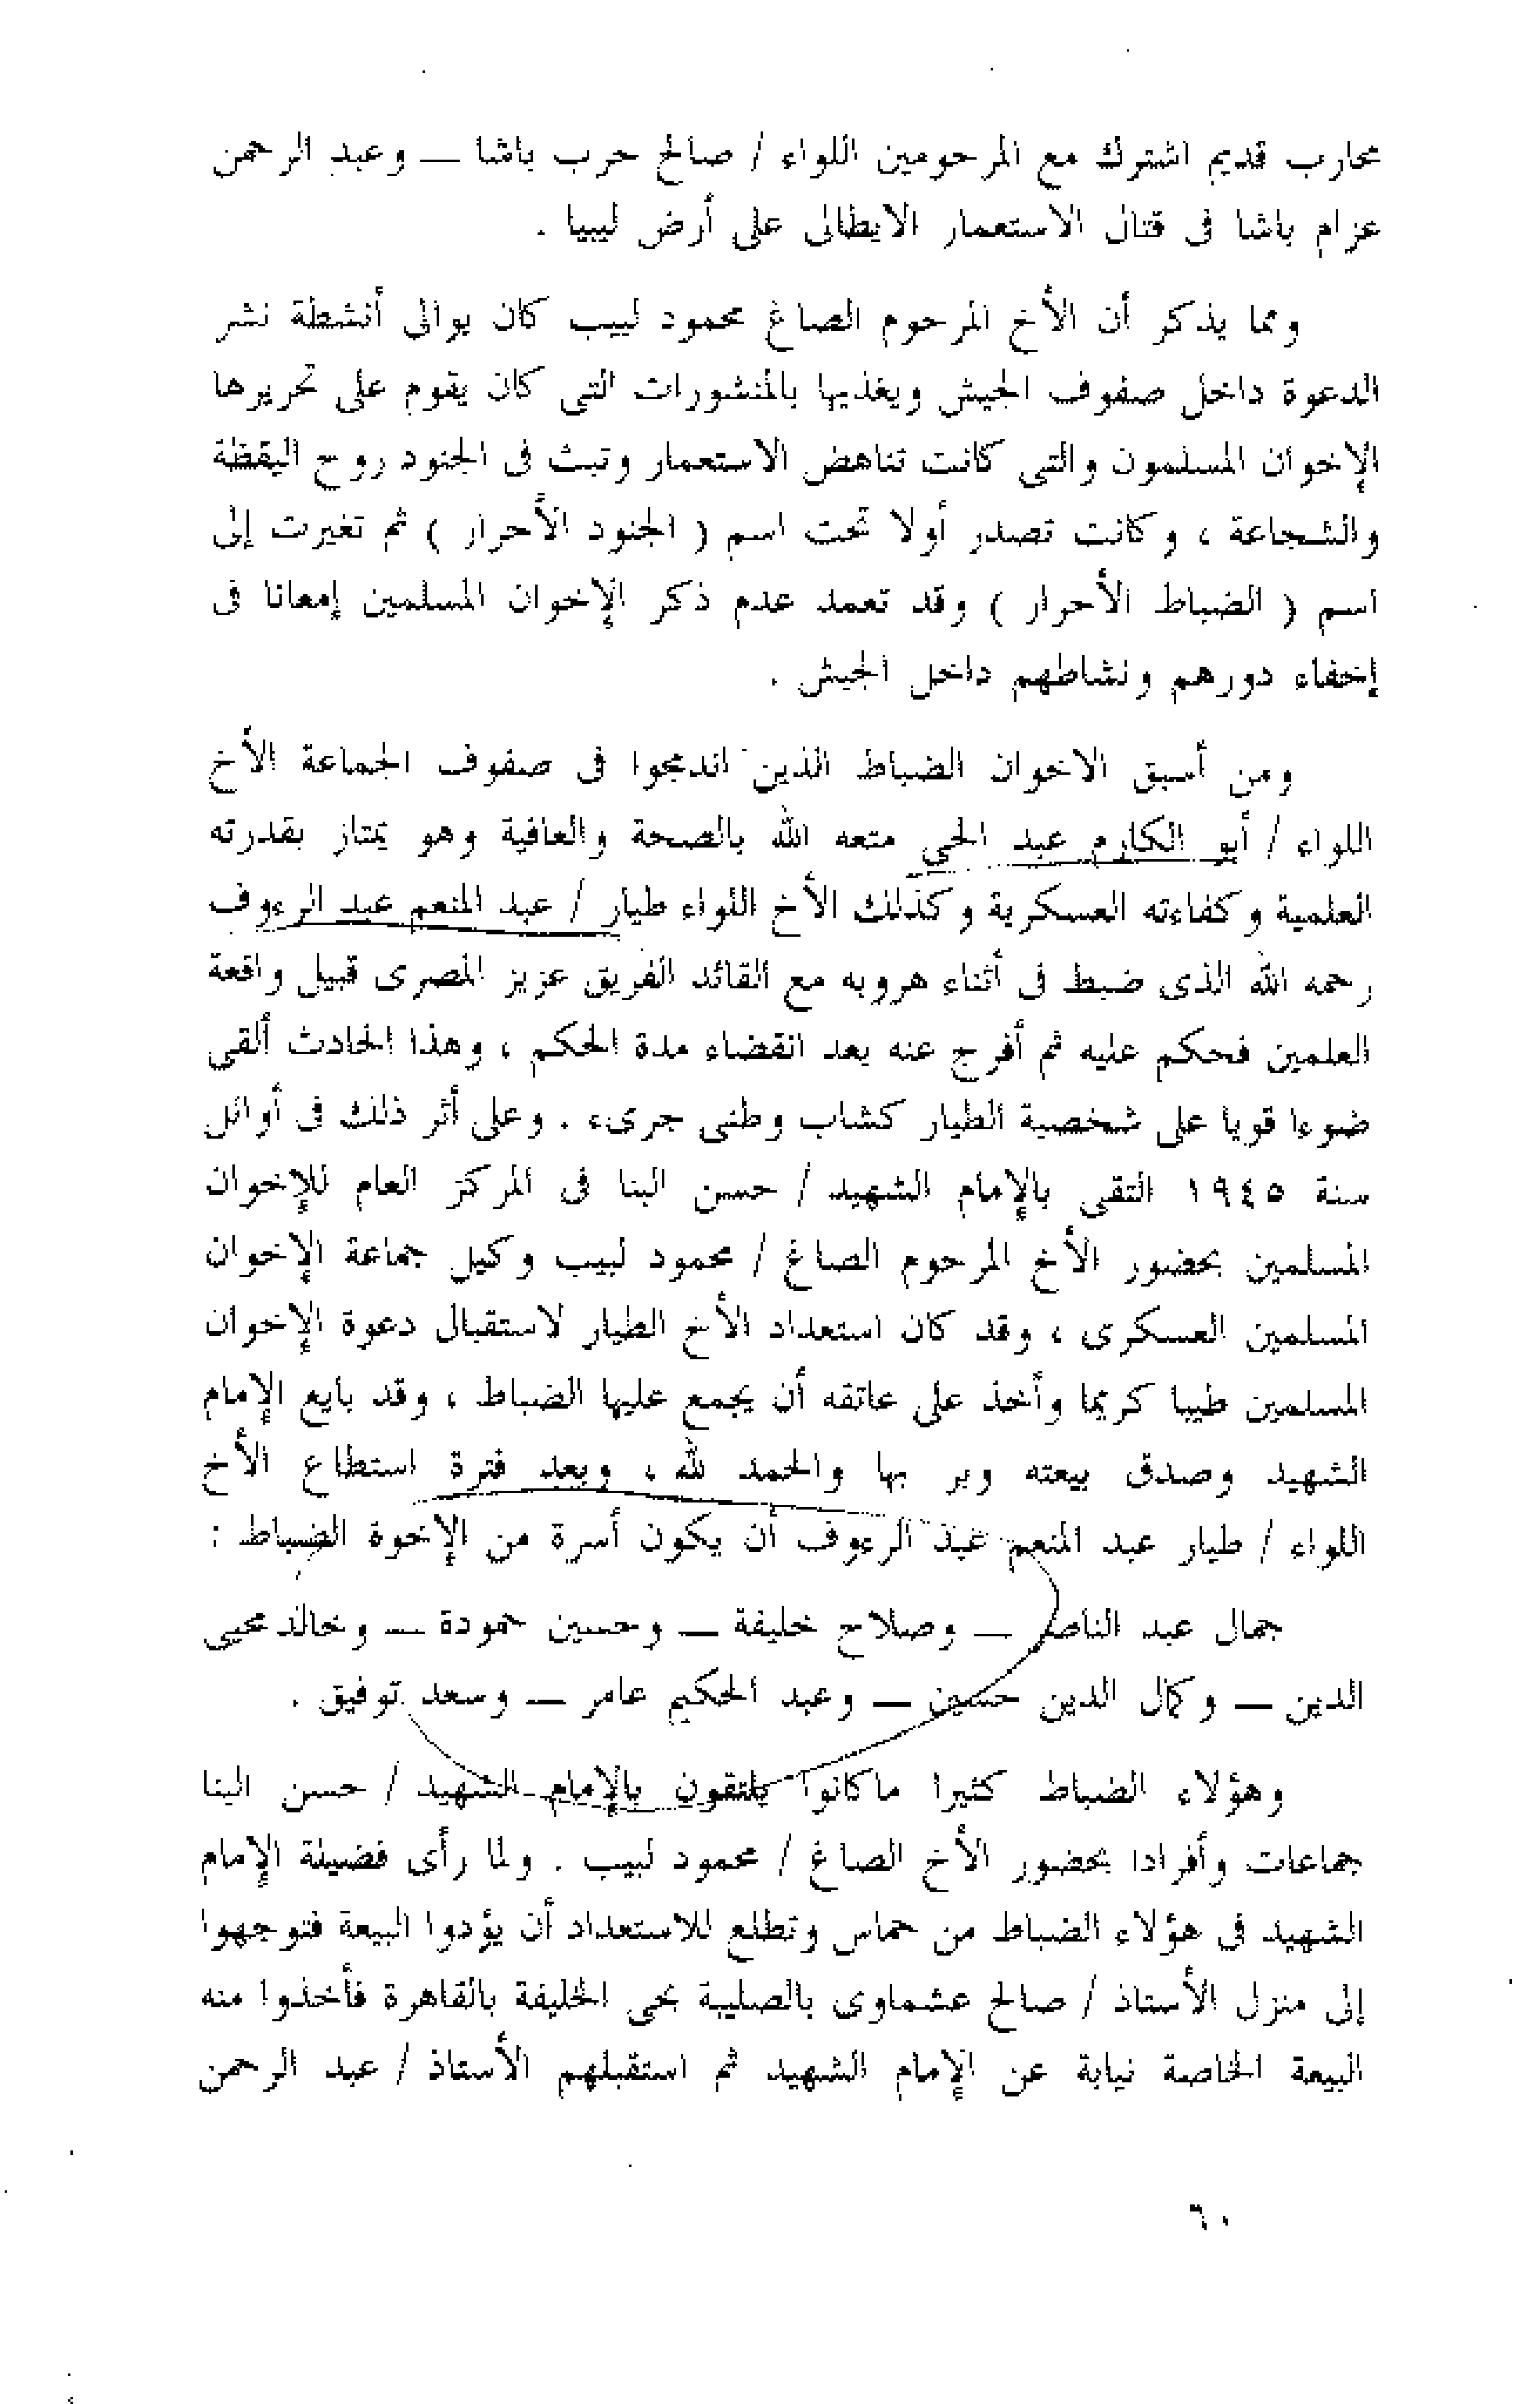 محارب قديم اشترك مع المرحومين اللواء / صالح حرب باشا — وعبد الرحمن
عزام باشا فى قتال الاستعمار الايطالى على أرض ليبيا .
ومما يذكر أن الأخ المرحوم الصاغ محمود لبيب كان يوالى أنشطة نشر
الدعوة داخل صفوف الجيش ويغذيها بالمنشورات التى كان يقوم على تحريرها
الإخوان المسلمون والتى كانت تناهض الاستعمار وتبث فى الجنود روح اليقظة
والشجاعة ، وكانت تصدر أولا تحت اسم ( الجنود الأحرار ) ثم تغيرت إلى
اسم ( الضباط الأحرار ) وقد تعمد عدم ذكر الإخوان المسلمين إمعانا فى
إخفاء دورهم ونشاطهم داخل الجيش .
ومن أسبق الاخوان الضباط الذين اندمجوا فى صفوف الجماعة الأخ
اللواء / أبو الكارم عبد الحي متعه الله بالصحة والعافية وهو يمتاز بقدرته
العلمية وكفاءته العسكرية وكذلك الأخ اللواء طيار / عبد المنعم عبد الرءوف
رحمه الله الذى ضبط فى أثناء هروبه مع القائد الفريق عزيز المصرى قبيل واقعة
العلمين فحكم عليه ثم أفرج عنه بعد انقضاء مدة الحكم ، وهذا الحادث ألقى
ضوءا قويا على شخصية الطيار كشاب وطنى جرىء . وعلى أثر ذلك فى أوائل
سنة ١٩٤٥ التقى بالإمام الشهيد / حسن البنا فى المركز العام للإخوان
المسلمين بحضور الأخ المرحوم الصاغ / محمود لبيب وكيل جماعة الإخوان
المسلمين العسكرى ، وقد كان استعداد الأخ الطيار لاستقبال دعوة الإخوان
المسلمين طيبا كريما وأخذ على عاتقه أن يجمع عليها الضباط ، وقد بايع الإمام
الشهيد وصدق بيعته وبر بها والحمد لله ، وبعد فترة استطاع الأخ
اللواء / طيار عبد المنعم عبد الرءوف أن يكون أسرة من الإخوة الضباط :
جمال عبد الناصر — وصلاح خليفة — وحسين حمودة — وخالد محيى
الدين — وكمال الدين حسين — وعبد الحكيم عامر — وسعد توفيق .
وهؤلاء الضباط كثيرا ماكانوا يلتقون بالإمام الشهيد / حسن البنا
جماعات وأفرادا بحضور الأخ الصاغ / محمود لبيب . ولما رأى فضيلة الإمام
الشهيد فى هؤلاء الضباط من حماس وتطلع للاستعداد أن يؤدوا البيعة فتوجهوا
إلى منزل الأستاذ / صالح عشماوى بالصليبة بحى الخليفة بالقاهرة فأخذوا منه
البيعة الخاصة نيابة عن الإمام الشهيد ثم استقبلهم الأستاذ / عبد الرحمن
٦٠